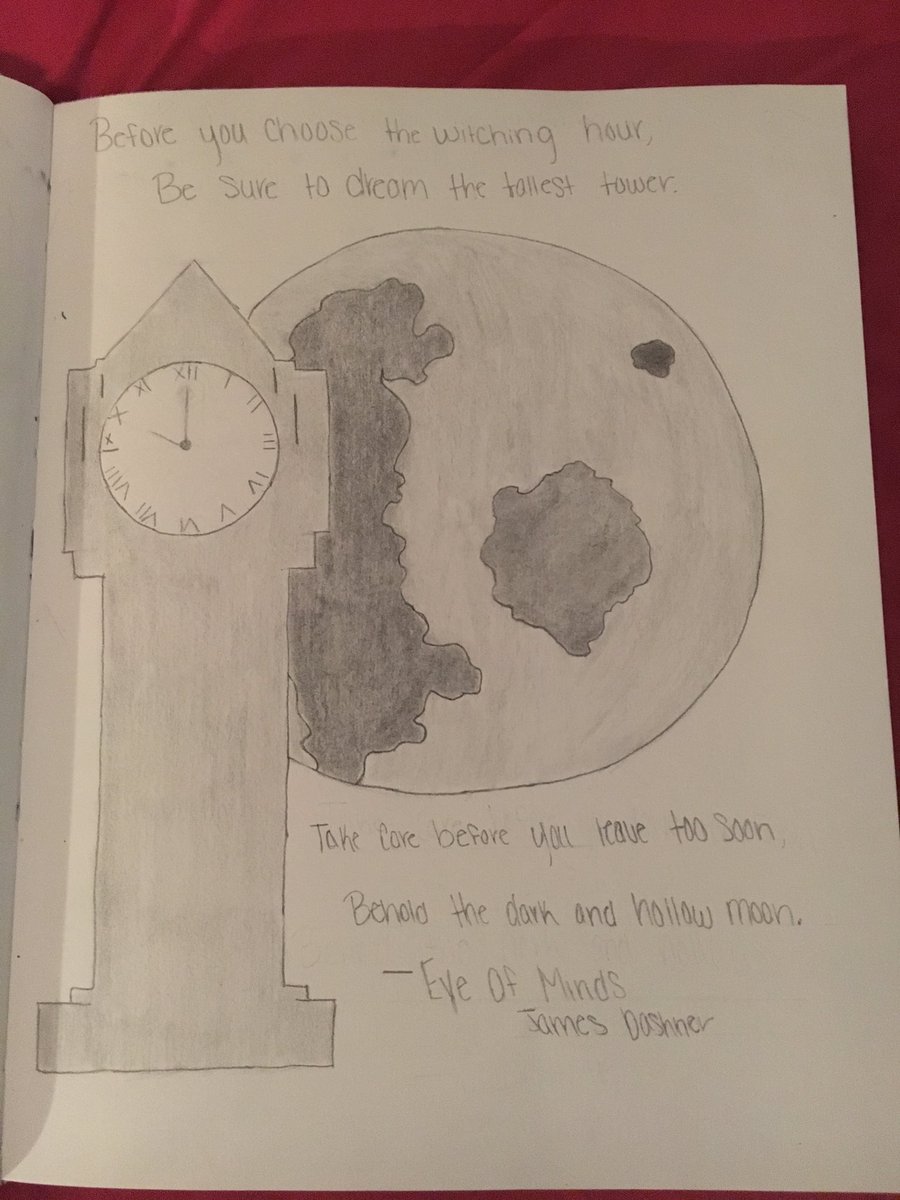 Before you choose the witching hour,
Be sure to dream the tallest tower.
XII
I
II
III
IV
V
VI
VII
VIII
X
XI
Take care before you leave too soon,
Behold the dark and hollow moon.
— Eye Of Minds
James Dashner